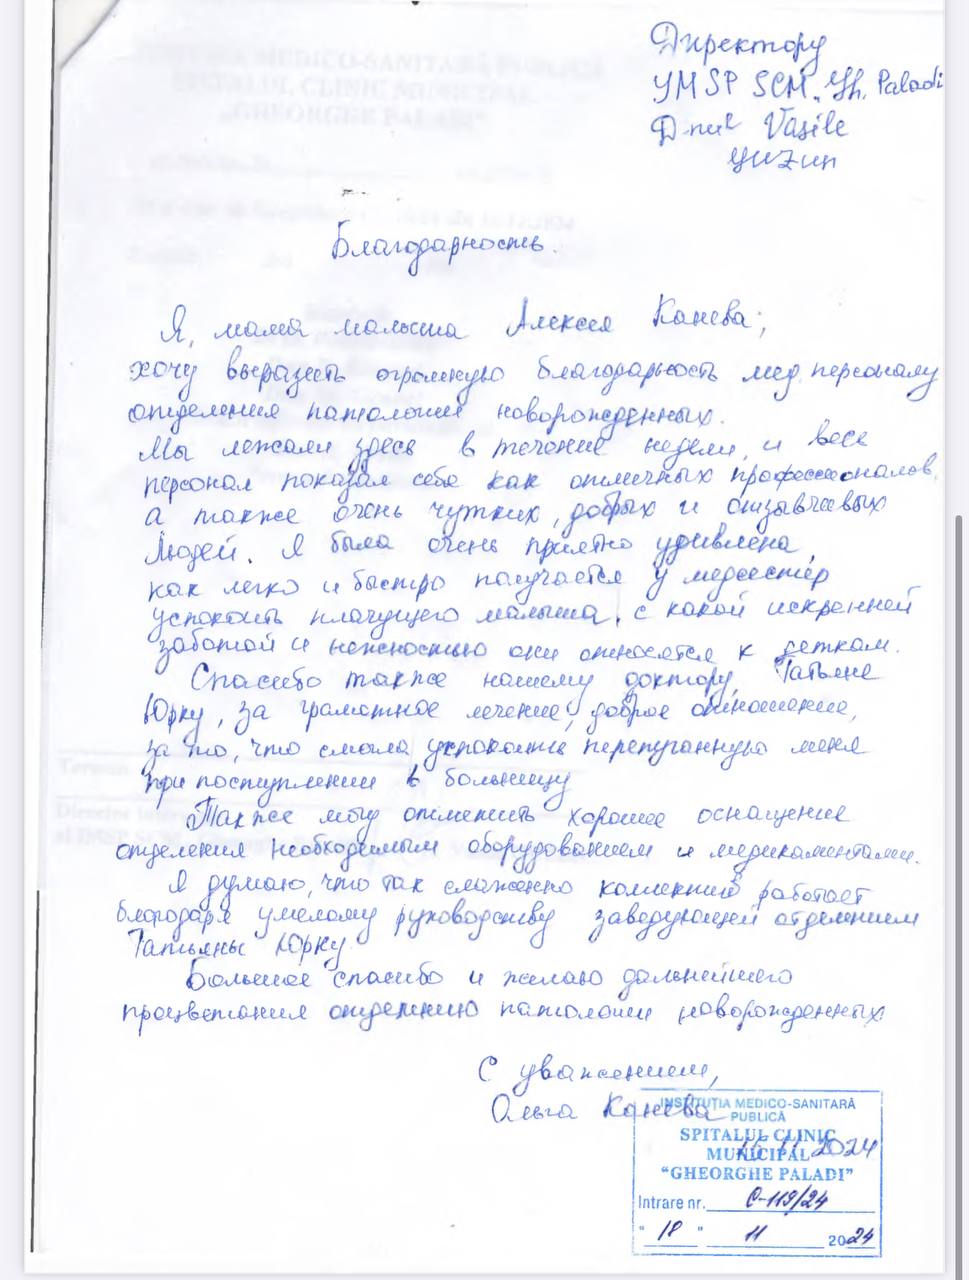 Директору
IMSP SCM „Gh. Paladi
D-nul Vasile
Guzun
Благодарность
Я, мама малыша Алексея Канева,
хочу выразить огромную благодарность мед. персоналу
отделения патологии новорожденных.
Мы лежали здесь в течение недели, и весь
персонал показал себя как отличных профессионалов,
а также очень чутких, добрых и отзывчивых
людей. Я была очень приятно удивлена,
как легко и быстро получается у медсестёр
успокоить плачущего малыша, с какой искренней
заботой и нежностью они относятся к деткам.
Спасибо также нашему доктору, Татьяне
Юрку, за грамотное лечение, доброе отношение,
за то, что смогла успокоить перепуганную меня
при поступлении в больницу
Также могу отметить хорошее оснащение
отделения необходимым оборудованием и медикаментами.
Я думаю, что так слаженно коллектив работает
благодаря умелому руководству заведующей отделением
Татьяны Юрку.
Большое спасибо и желаю дальнейшего
процветания отделению патологии новорожденных
С уважением,
Ольга Канева
INSTITUȚIA MEDICO-SANITARĂ
PUBLICĂ
SPITALUL CLINIC
MUNICIPAL
“GHEORGHE PALADI”
11 2024
Intrare nr. C-119/24
" 18 " 11 2024